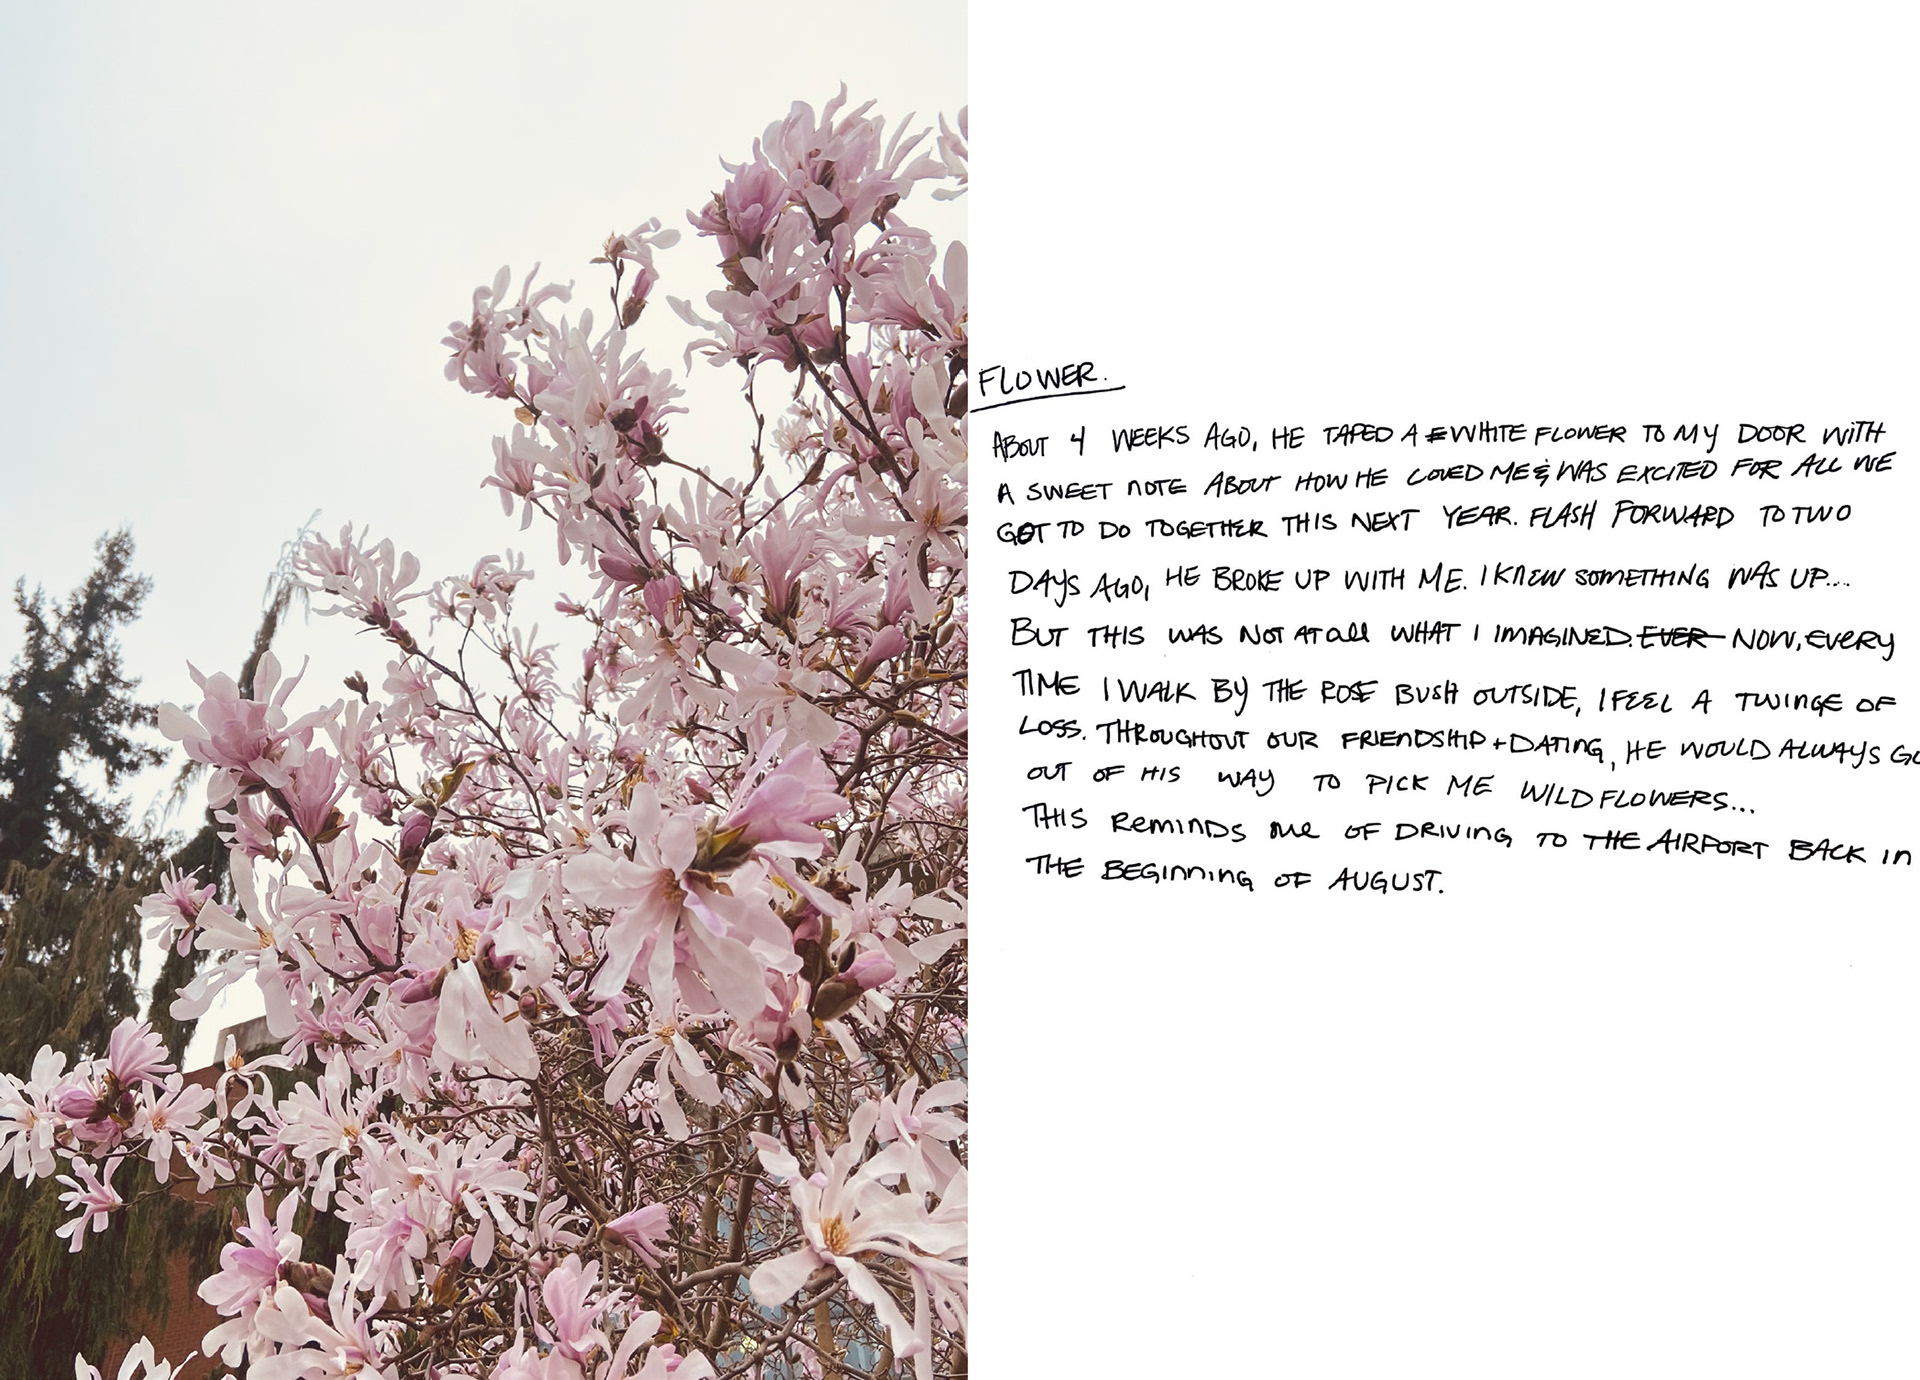 FLOWER.
ABOUT 4 WEEKS AGO, HE TAPED A WHITE FLOWER TO MY DOOR WITH
A SWEET NOTE ABOUT HOW HE LOVED ME & WAS EXCITED FOR ALL WE
GOT TO DO TOGETHER THIS NEXT YEAR. FLASH FORWARD TO TWO
DAYS AGO, HE BROKE UP WITH ME. I KNEW SOMETHING WAS UP...
BUT THIS WAS NOT AT all WHAT I IMAGINED. EVER NOW, EVERY
TIME I WALK BY THE ROSE BUSH OUTSIDE, I FEEL A TWINGE OF
LOSS. THROUGHOUT OUR FRIENDSHIP + DATING, HE WOULD ALWAYS GO
OUT OF HIS WAY TO PICK ME WILDFLOWERS...
THIS REMINDS me OF DRIVING TO THE AIRPORT BACK IN
THE BEGINNING OF AUGUST.